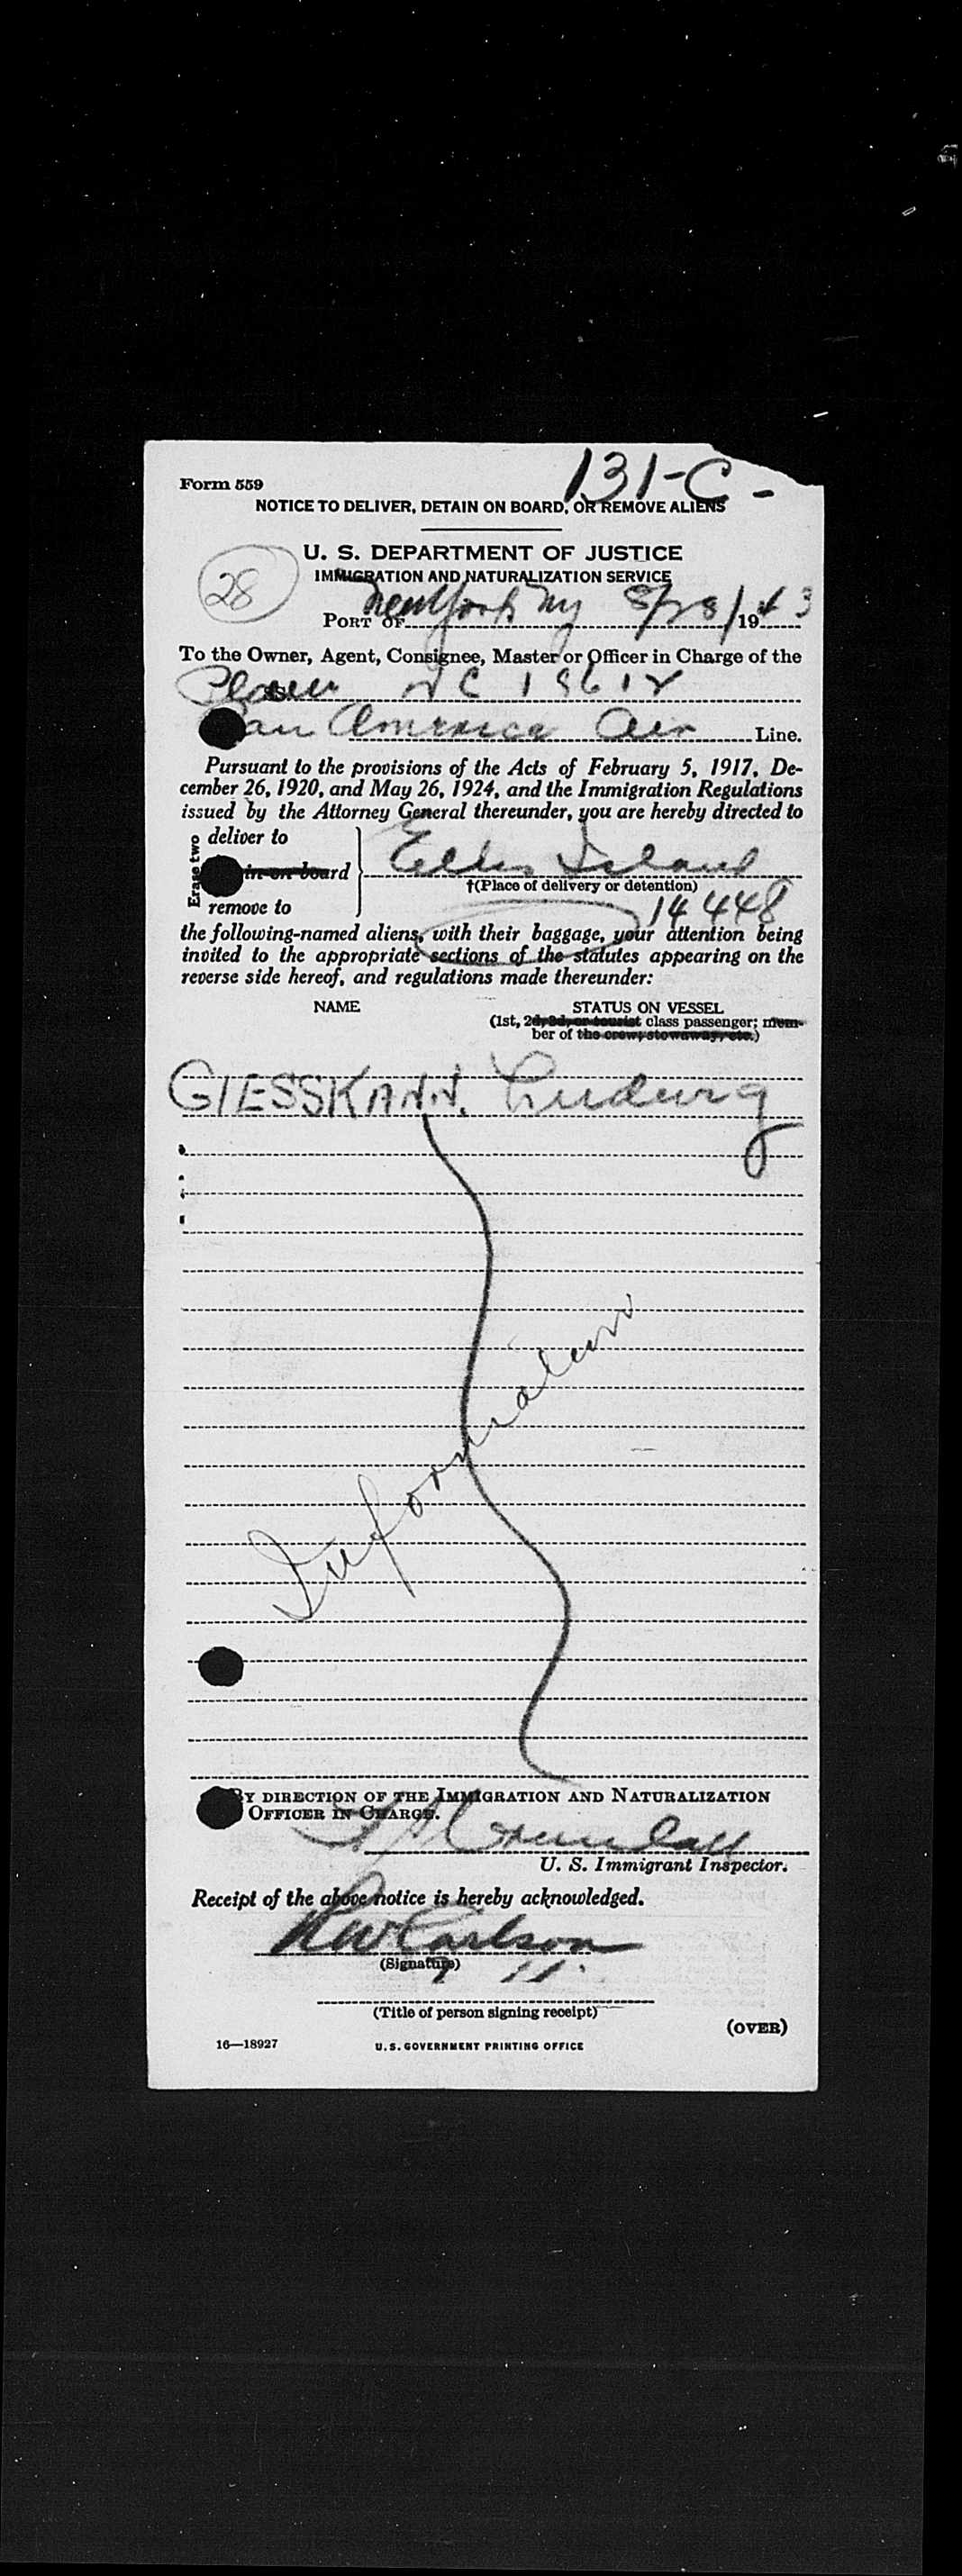 131-C-
Form 559
NOTICE TO DELIVER, DETAIN ON BOARD, OR REMOVE ALIENS
U. S. DEPARTMENT OF JUSTICE
28
IMMIGRATION AND NATURALIZATION SERVICE
PORT OF New York NY 8/28/1943
To the Owner, Agent, Consignee, Master or Officer in Charge of the
NC 18612
an America Air Line.
Pursuant to the provisions of the Acts of February 5, 1917, De-
cember 26, 1920, and May 26, 1924, and the Immigration Regulations
issued by the Attorney General thereunder, you are hereby directed to
Erase two
deliver to
in on board Ellis Island
†(Place of delivery or detention)
remove to 14448
the following-named aliens, with their baggage, your attention being
invited to the appropriate sections of the statutes appearing on the
reverse side hereof, and regulations made thereunder:
NAME STATUS ON VESSEL
(1st, 2d, 3d, or tourist class passenger; mem-
ber of the crew; stowaway, etc.)
GIESSKANN, Ludwig
BY DIRECTION OF THE IMMIGRATION AND NATURALIZATION
OFFICER IN CHARGE.
U. S. Immigrant Inspector.
Receipt of the above notice is hereby acknowledged.
Carlson
(Signature)
(Title of person signing receipt)
(OVER)
16—18927 U. S. GOVERNMENT PRINTING OFFICE